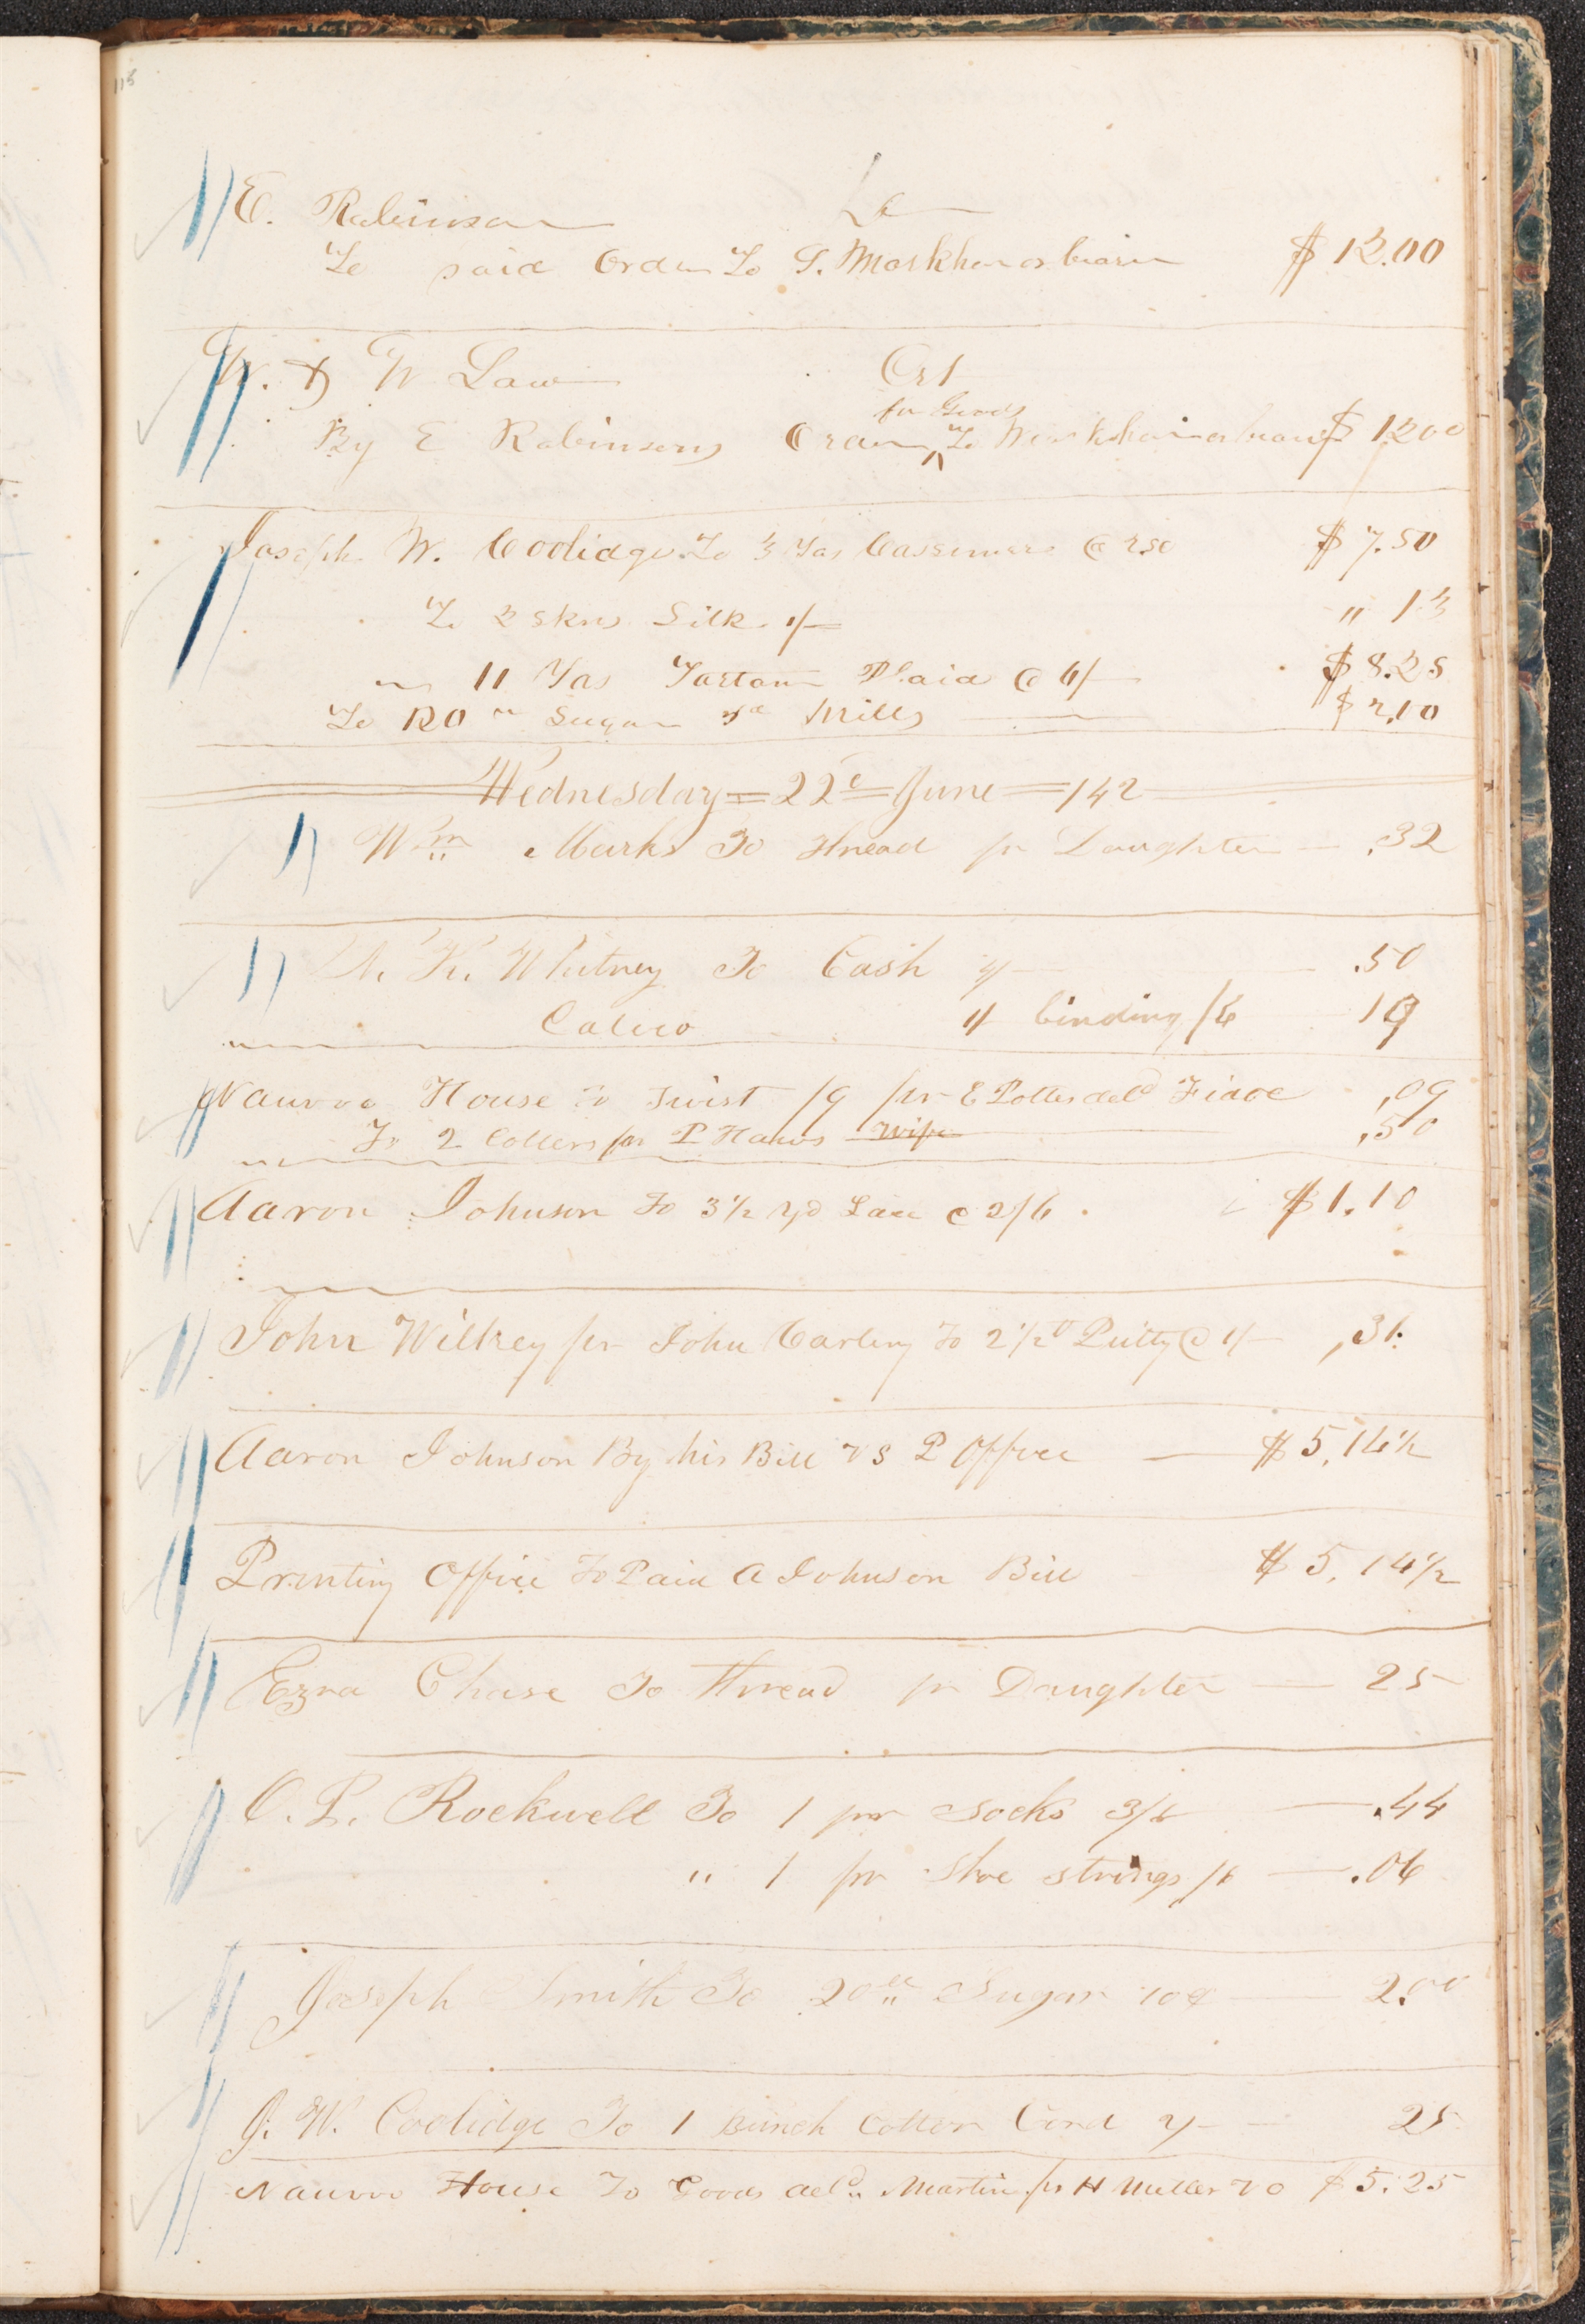 E. Robinson Dr
To said Order To S. Markham or bearer $12.00
W. & W Law Cr
for Goods
By E Robinsons Order To Markham or bearer $1200
Joseph W. Coolidge To 3 Yds Cassimere @ 250 $7.50
To 2 Skns Silk /— " 13
" 11 Yds Tartan Plaid @ 6/— $8.25
To 20 Sugar pd Mills $2,10
Wednesday = 22d = June = /42
Wm Marks To Thread pr Daughter — .32
N. K. Whitney To Cash — .50
Calico " binding /6 19
Nauvoo House To Twist /9 pr E Potter deld ,09
To 2 Collers pr P Haws wife ,50
Aaron Johnson To 3 1/2 yd Lace @ 2/6 $1.10
John Wilkey pr John Carling To 2 1/2 Putty @ 1/— ,31
Aaron Johnson By his Bill vs P Office — $5,14 1/2
Printing Office To Paid A Johnson Bill $5,14 1/2
Ezra Chase To Thread pr Daughter — 25
O. P. Rockwell To 1 pr Socks 3/6 — .44
" 1 pr Shoe strings /6 — .06
Joseph Smith To 20 lb Sugar 10¢ — 2.00
J. W. Coolidge To 1 Bunch Cotton Cord 2/— 25
Nauvoo House To Goods deld Martin pr H Miller vo $5.25